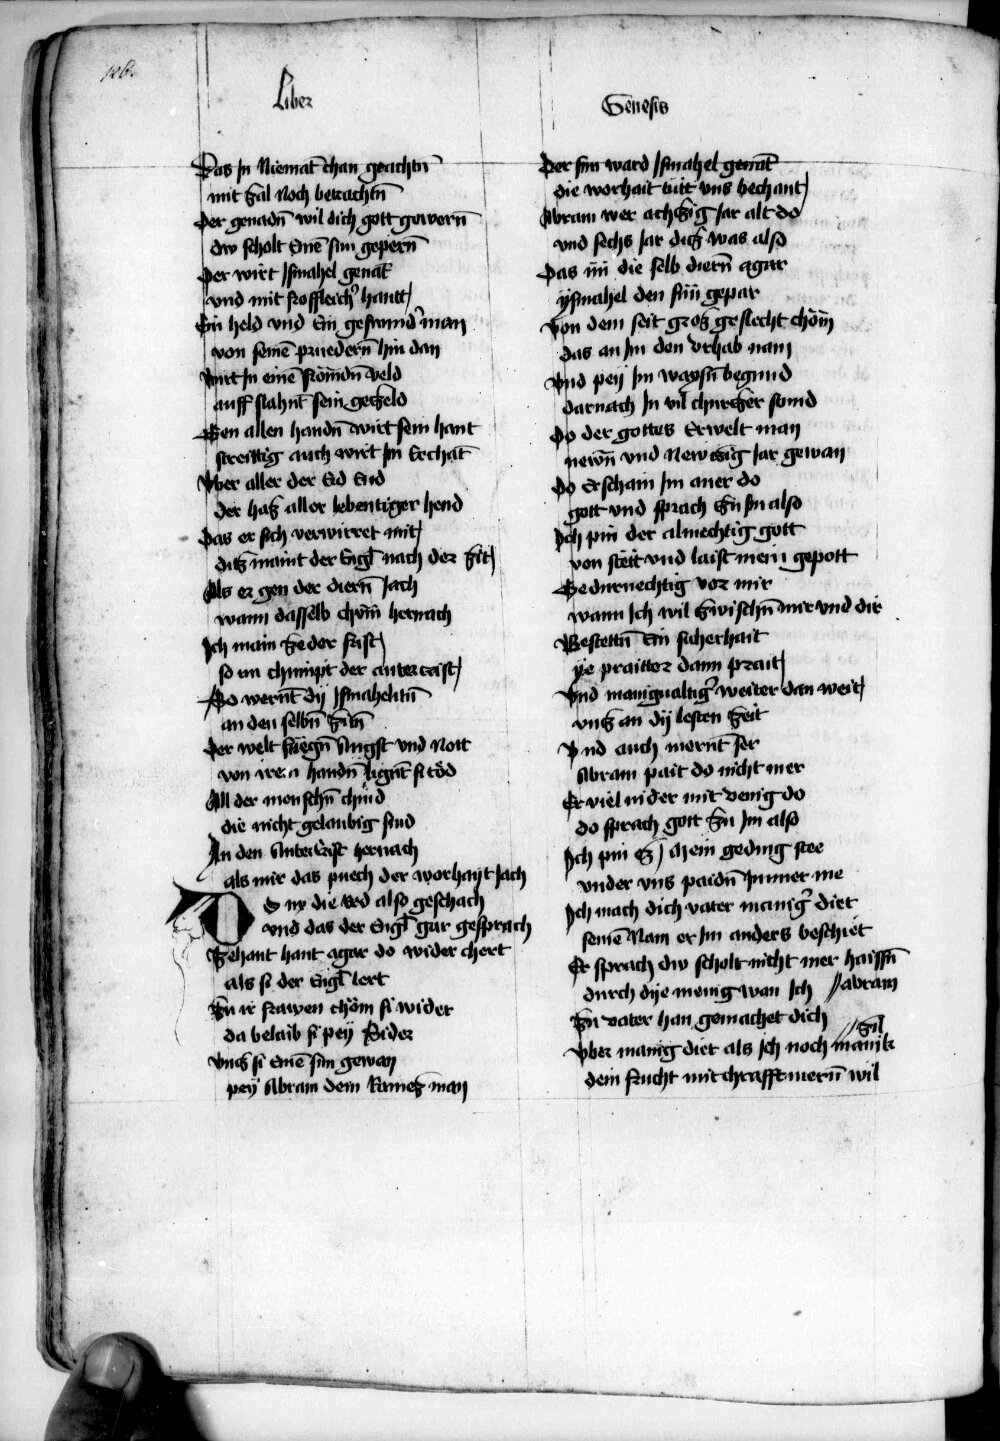 126.
Liber
Genesis
Das jn Niemāt chan geachtn̄
mit Zal Noch betrachtn̄
Der genadn̄ wil dich gott gewern̄
dw scholt Einē sun gepern̄
Der wirt Jsmahel genāt
vnd mit hantt
Ein held vnd Ein man
von seinē pruedern̄ hin dan
wirt jn einē veld
auff slahn̄t sein geczeld
Gen allen handn̄ wirt sein hant
streittig auch wirt jm Erchāt
Vber aller der Eid Eid
der haß aller lebentiger hend
Das er sich verwirret mit
diß maint der Engl̄ nach der Zit
Als er gen der diern̄ jach
wann dasselb chöm̄ hernach
Ich main Ze der frist
so nu chumpt der antercrist
So wern̄t dÿ Jsmahelitn̄
an den selbn̄ Zitn̄
Der welt fuegn̄ Angst vnd Nott
von iren handn̄ lign̄t si töd
All der menschn̄ chind
die nicht gelaubig sind
An den Antercrist hernach
als mir das puech der worhayt jach
DO nv die Red also geschach
vnd das der Engl̄ gar gesprach
Zehant hant agar do wider chert
als si der Engl̄ lert
Zu ir frawen chöm si wider
da belaib si peÿ sider
vnß si Einē sun gewan
peÿ Abram dem man
Der sun ward Jsmahel genāt
die worhait tutt vns bechant
Abram wer achßig jar alt do
vnd sechs jar diß was also
Das im die selb diern̄ agar
ÿsmahel den sun gepar
Von dem seit groß geslecht chöm̄
das an jm den vrhab nam
Vnd peÿ jm waxsn̄ begund
darnach jn vil churczer stund
Do der gottes Erwelt man
newn̄ vnd Newnßig jar gewan
Do Erschain jm aner do
gott vnd sprach Zu jm also
Ich pin der almechtig gott
von stett vnd laist mein gepott
Ge durnechtig vor mir
wann jch wil Zwischn̄ mir vnd dir
Bestettn̄ Ein sicherhait
ye praitter dann prait
Vnd manigualtigʼ weiter dan weit
vnß an dÿ lesten Zeit
Vnd auch mern̄t ser
Abram pait do nicht mer
Er viel nider mit venig do
do sprach gott Zu jm also
Ich pin Eß mein geding stee
vnder vns paidn̄ jmmer me
Ich mach dich vater manigʼ diet
seinē Nam er jm anders beschiet
Er sprach dw scholt nicht mer haissn̄
durch dÿe menig wan jch //abram
Zu vater han gemachet dich
Vber manig diet als jch noch manik
//Zil
dein frucht mit chrafft mern̄ wil